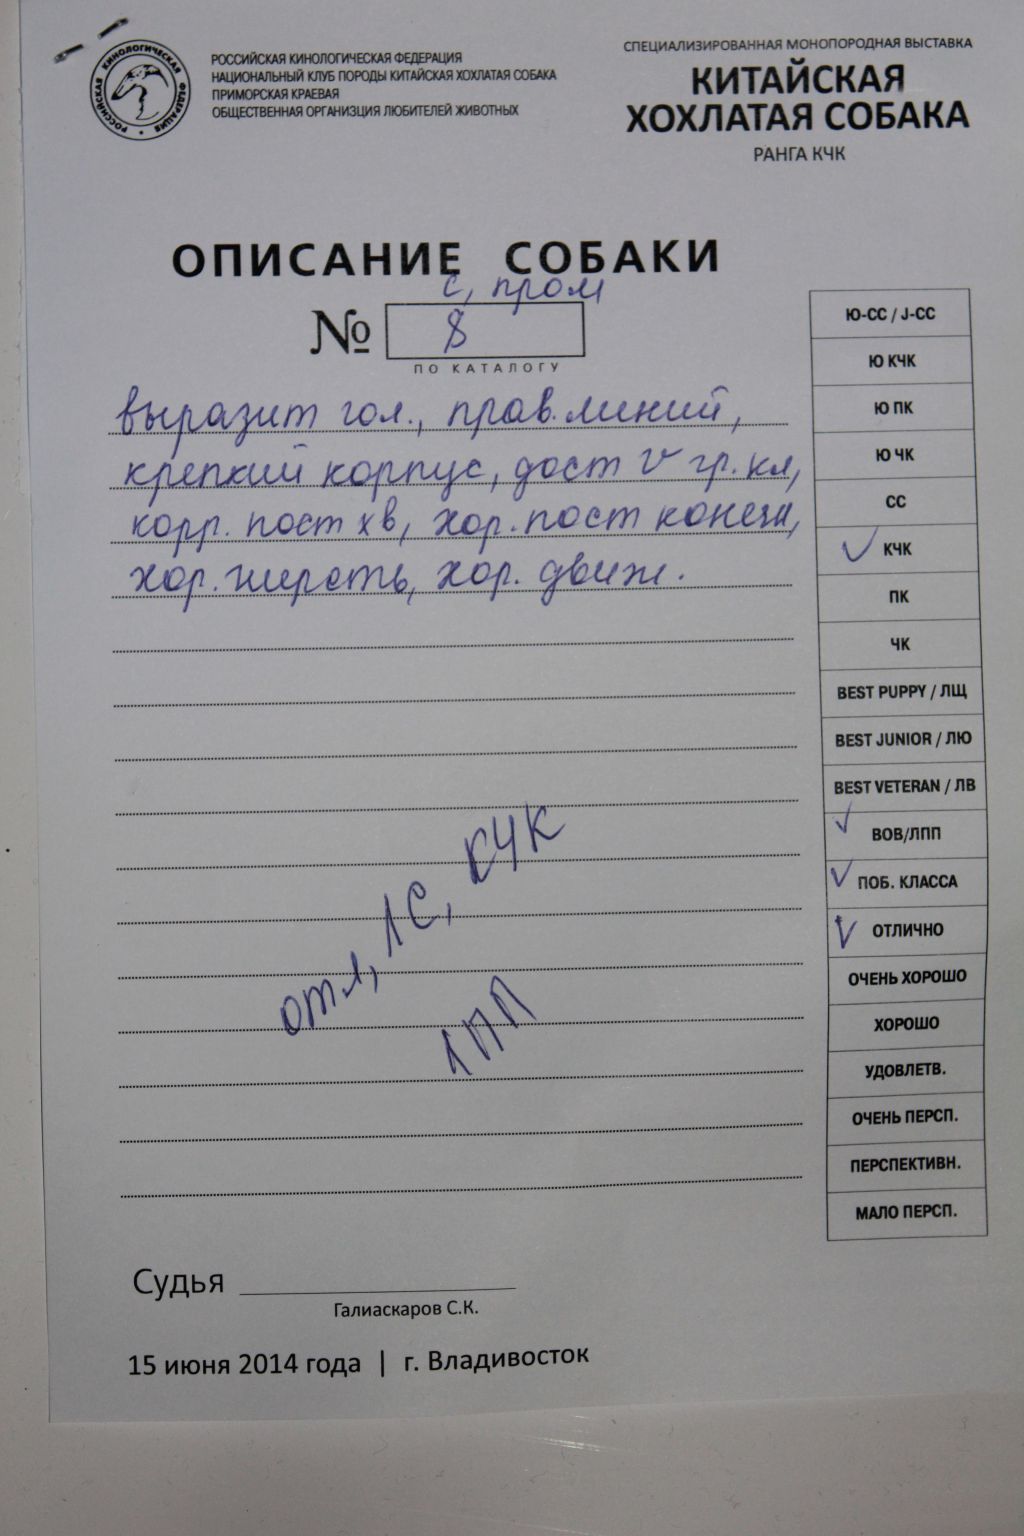 РОССИЙСКАЯ КИНОЛОГИЧЕСКАЯ ФЕДЕРАЦИЯ
РОССИЙСКАЯ КИНОЛОГИЧЕСКАЯ ФЕДЕРАЦИЯ
НАЦИОНАЛЬНЫЙ КЛУБ ПОРОДЫ КИТАЙСКАЯ ХОХЛАТАЯ СОБАКА
ПРИМОРСКАЯ КРАЕВАЯ
ОБЩЕСТВЕННАЯ ОРГАНИЗЦИЯ ЛЮБИТЕЛЕЙ ЖИВОТНЫХ
СПЕЦИАЛИЗИРОВАННАЯ МОНОПОРОДНАЯ ВЫСТАВКА
КИТАЙСКАЯ
ХОХЛАТАЯ СОБАКА
РАНГА КЧК
ОПИСАНИЕ СОБАКИ
с, пром
№ 8
ПО КАТАЛОГУ
выразит гол., прав. линий,
крепкий корпус, дост V гр. кл,
корр. пост хв, хор. пост конечн,
хор. шерсть, хор. движ.
отл, ЛС, КЧК
ЛПП
Ю-СС / J-CC
Ю КЧК
Ю ПК
Ю ЧК
СС
✓ КЧК
ПК
ЧК
BEST PUPPY / ЛЩ
BEST JUNIOR / ЛЮ
BEST VETERAN / ЛВ
✓ BOB/ЛПП
✓ ПОБ. КЛАССА
✓ ОТЛИЧНО
ОЧЕНЬ ХОРОШО
ХОРОШО
УДОВЛЕТВ.
ОЧЕНЬ ПЕРСП.
ПЕРСПЕКТИВН.
МАЛО ПЕРСП.
Судья
Галиаскаров С.К.
15 июня 2014 года | г. Владивосток